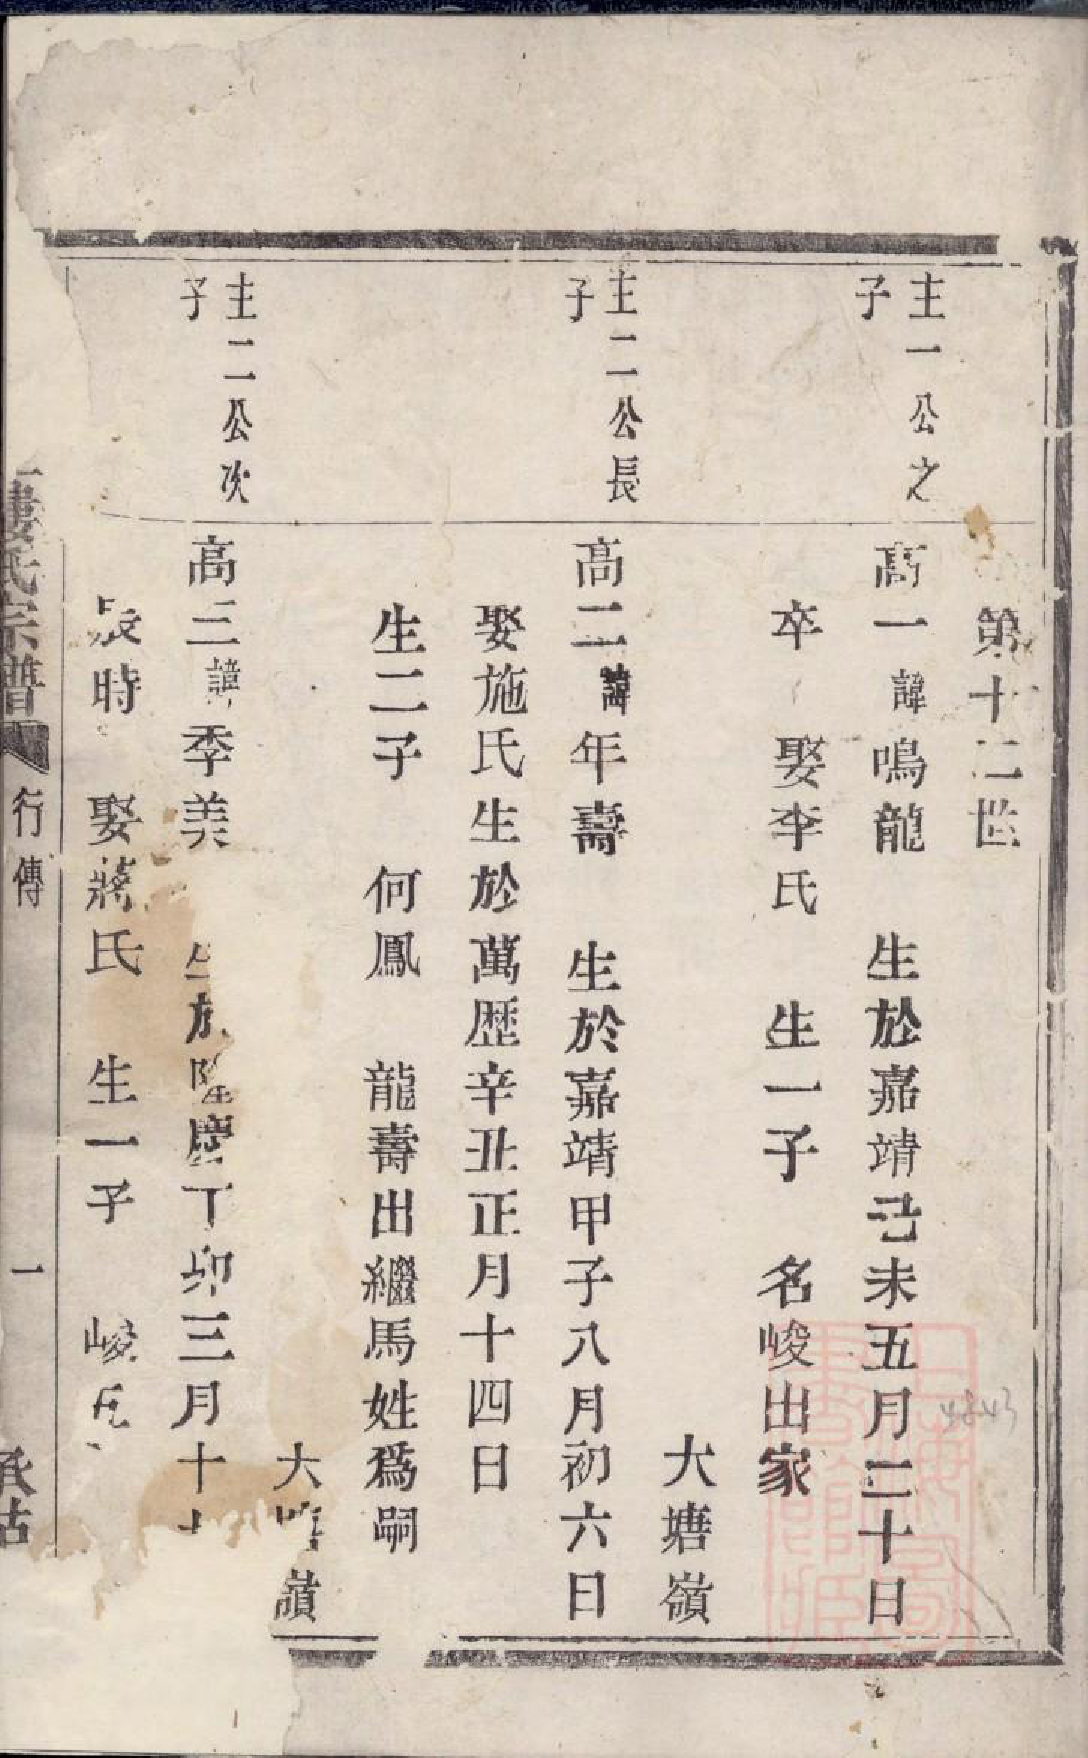 第十二世
主一公之
子
高一諱鳴龍 生於嘉靖己未五月二十日
卒 娶李氏 生一子 名峻出家
大塘嶺
主二公長
子
高二諱年壽 生於嘉靖甲子八月初六日
娶施氏生於萬歷辛丑正月十四日
生二子 何鳳 龍壽出繼馬姓爲嗣
大 嶺
主二公次
子
高三諱季美 生於隆慶丁卯三月十
辰時 娶蔣氏 生一子 峻
婁氏宗譜 行傳 一 承祜
4843